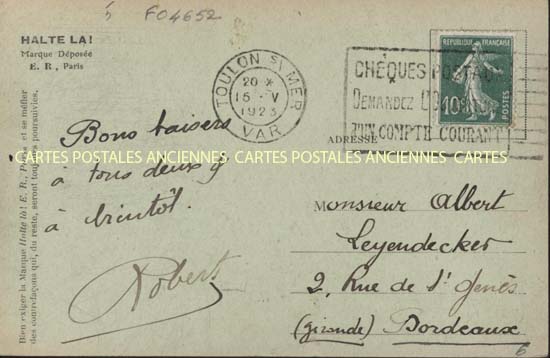 F04652
HALTE LA!
Marque Déposée
E. R., Paris
TOULON S/ MER
20 *
15 - V
1923
VAR
CHÈQUES POSTAUX
DEMANDEZ L'OUVERTURE
D'UN COMPTE COURANT
REPUBLIQUE FRANÇAISE
10c
POSTES
ADRESSE
Bons baisers
à tous deux &
à bientôt.
Robert
CARTES POSTALES ANCIENNES CARTES POSTALES ANCIENNES CARTES
Monsieur Albert
Leyendecker
2, Rue de St Genès
(gironde) Bordeaux
6
Bien exiger la Marque Halte là! E. R., Paris et se méfier
des contrefaçons qui, du reste, seront toujours poursuivies.